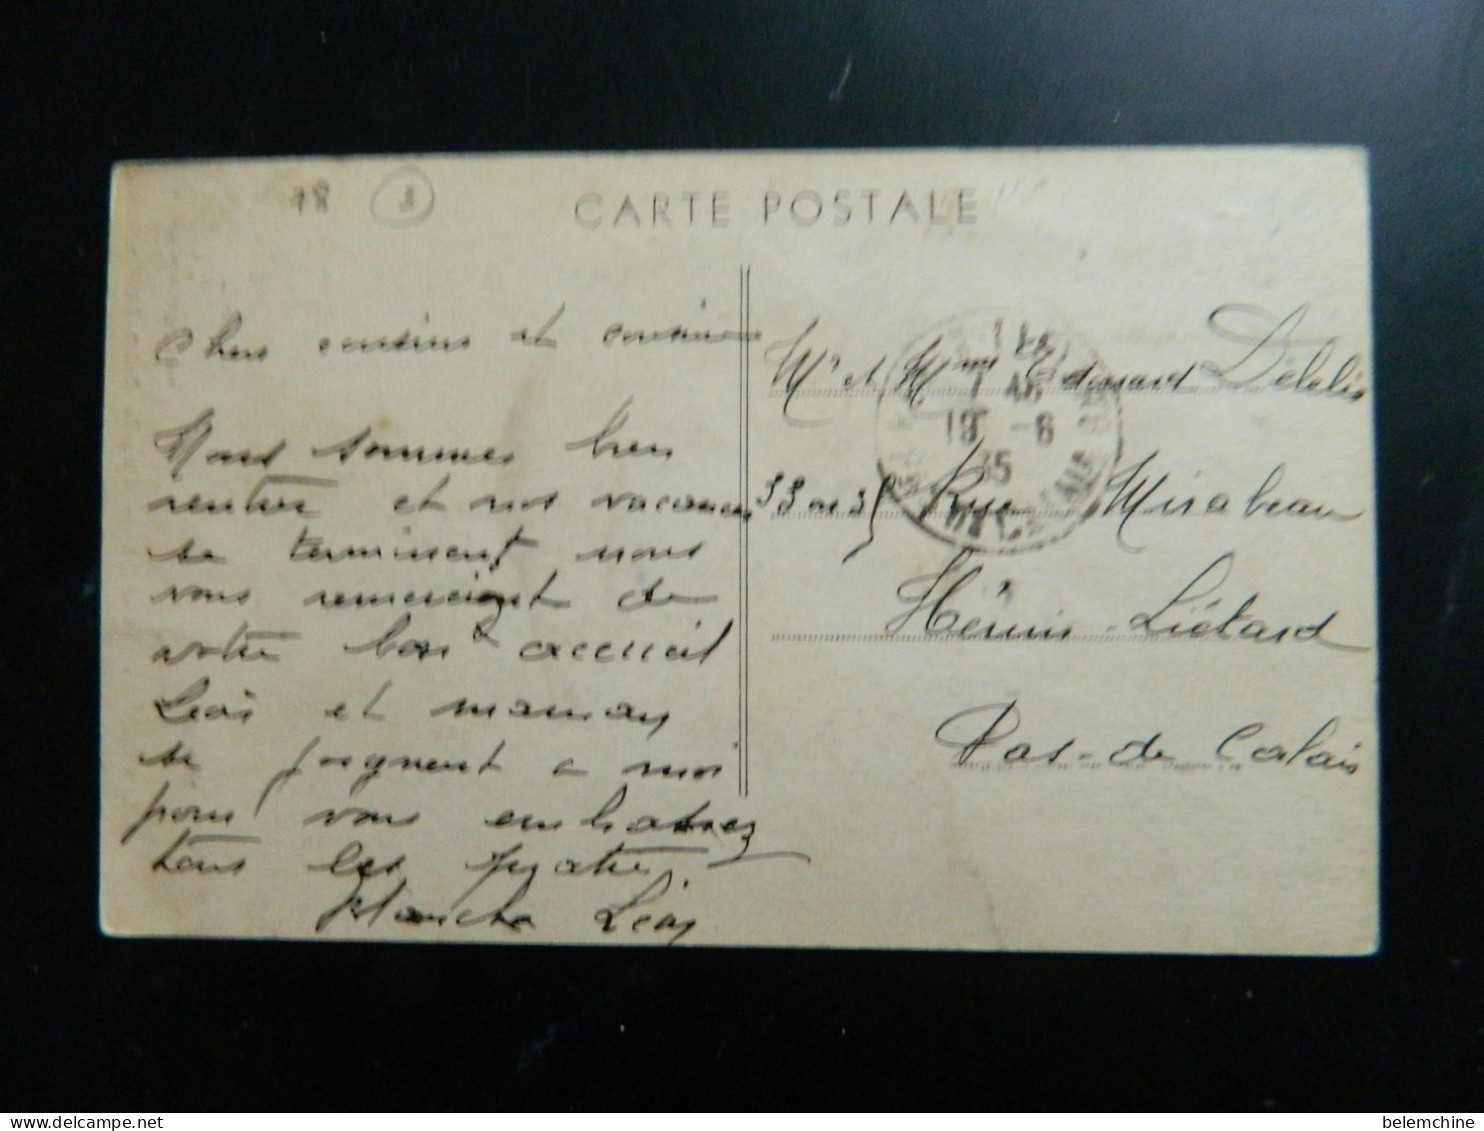 78 3
CARTE POSTALE
Chers cousins et cousine
Nous sommes bien
rentrés et nos vacances
se terminent nous
vous remercient de
votre bon acceuil
Léon et maman
se joignent a moi
pour vous embrassez
tous les quatre
Blanche Léon
Mr et Mme Edouard Delelis
Rue Mirabeau
Hénin-Liétard
Pas-de Calais
19 -8
35
PAS DE CALAIS
belemchine